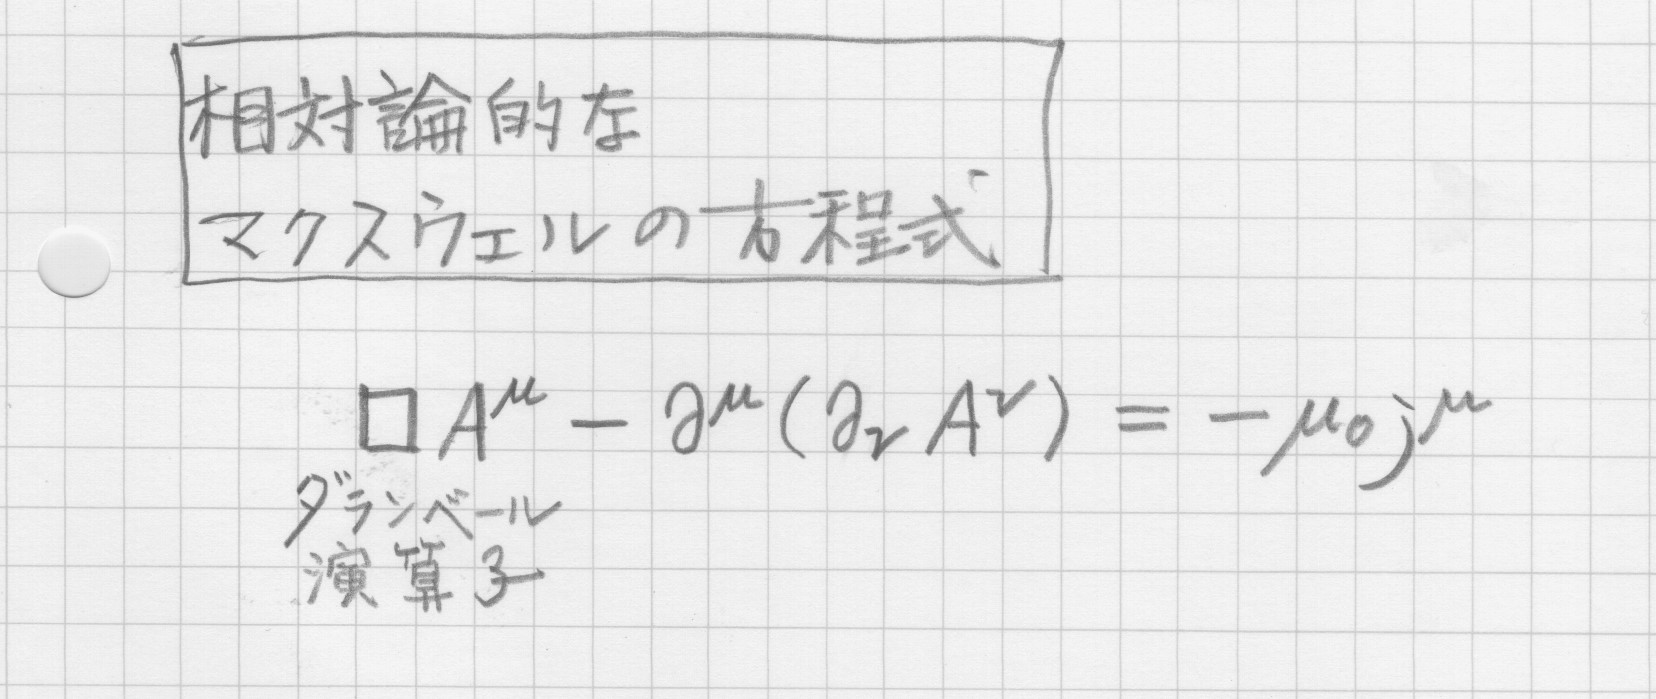 相対論的な
マクスウェルの方程式
□A^μ − ∂^μ(∂_ν A^ν) = −μ₀j^μ
ダランベール
演算子